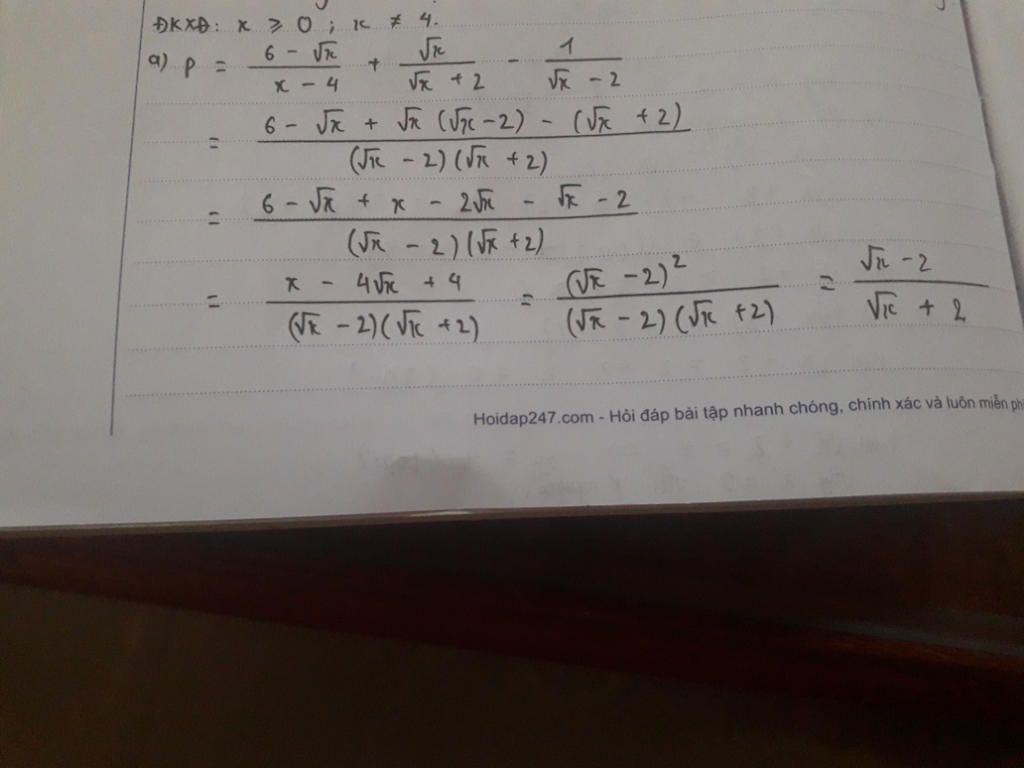 ĐKXĐ: x ≥ 0 ; x ≠ 4.
a) P = \frac{6 - √x}{x - 4} + \frac{√x}{√x + 2} - \frac{1}{√x - 2}
= \frac{6 - √x + √x (√x - 2) - (√x + 2)}{(√x - 2)(√x + 2)}
= \frac{6 - √x + x - 2√x - √x - 2}{(√x - 2)(√x + 2)}
= \frac{x - 4√x + 4}{(√x - 2)(√x + 2)} = \frac{(√x - 2)^2}{(√x - 2)(√x + 2)} = \frac{√x - 2}{√x + 2}
Hoidap247.com - Hỏi đáp bài tập nhanh chóng, chính xác và luôn miễn phí